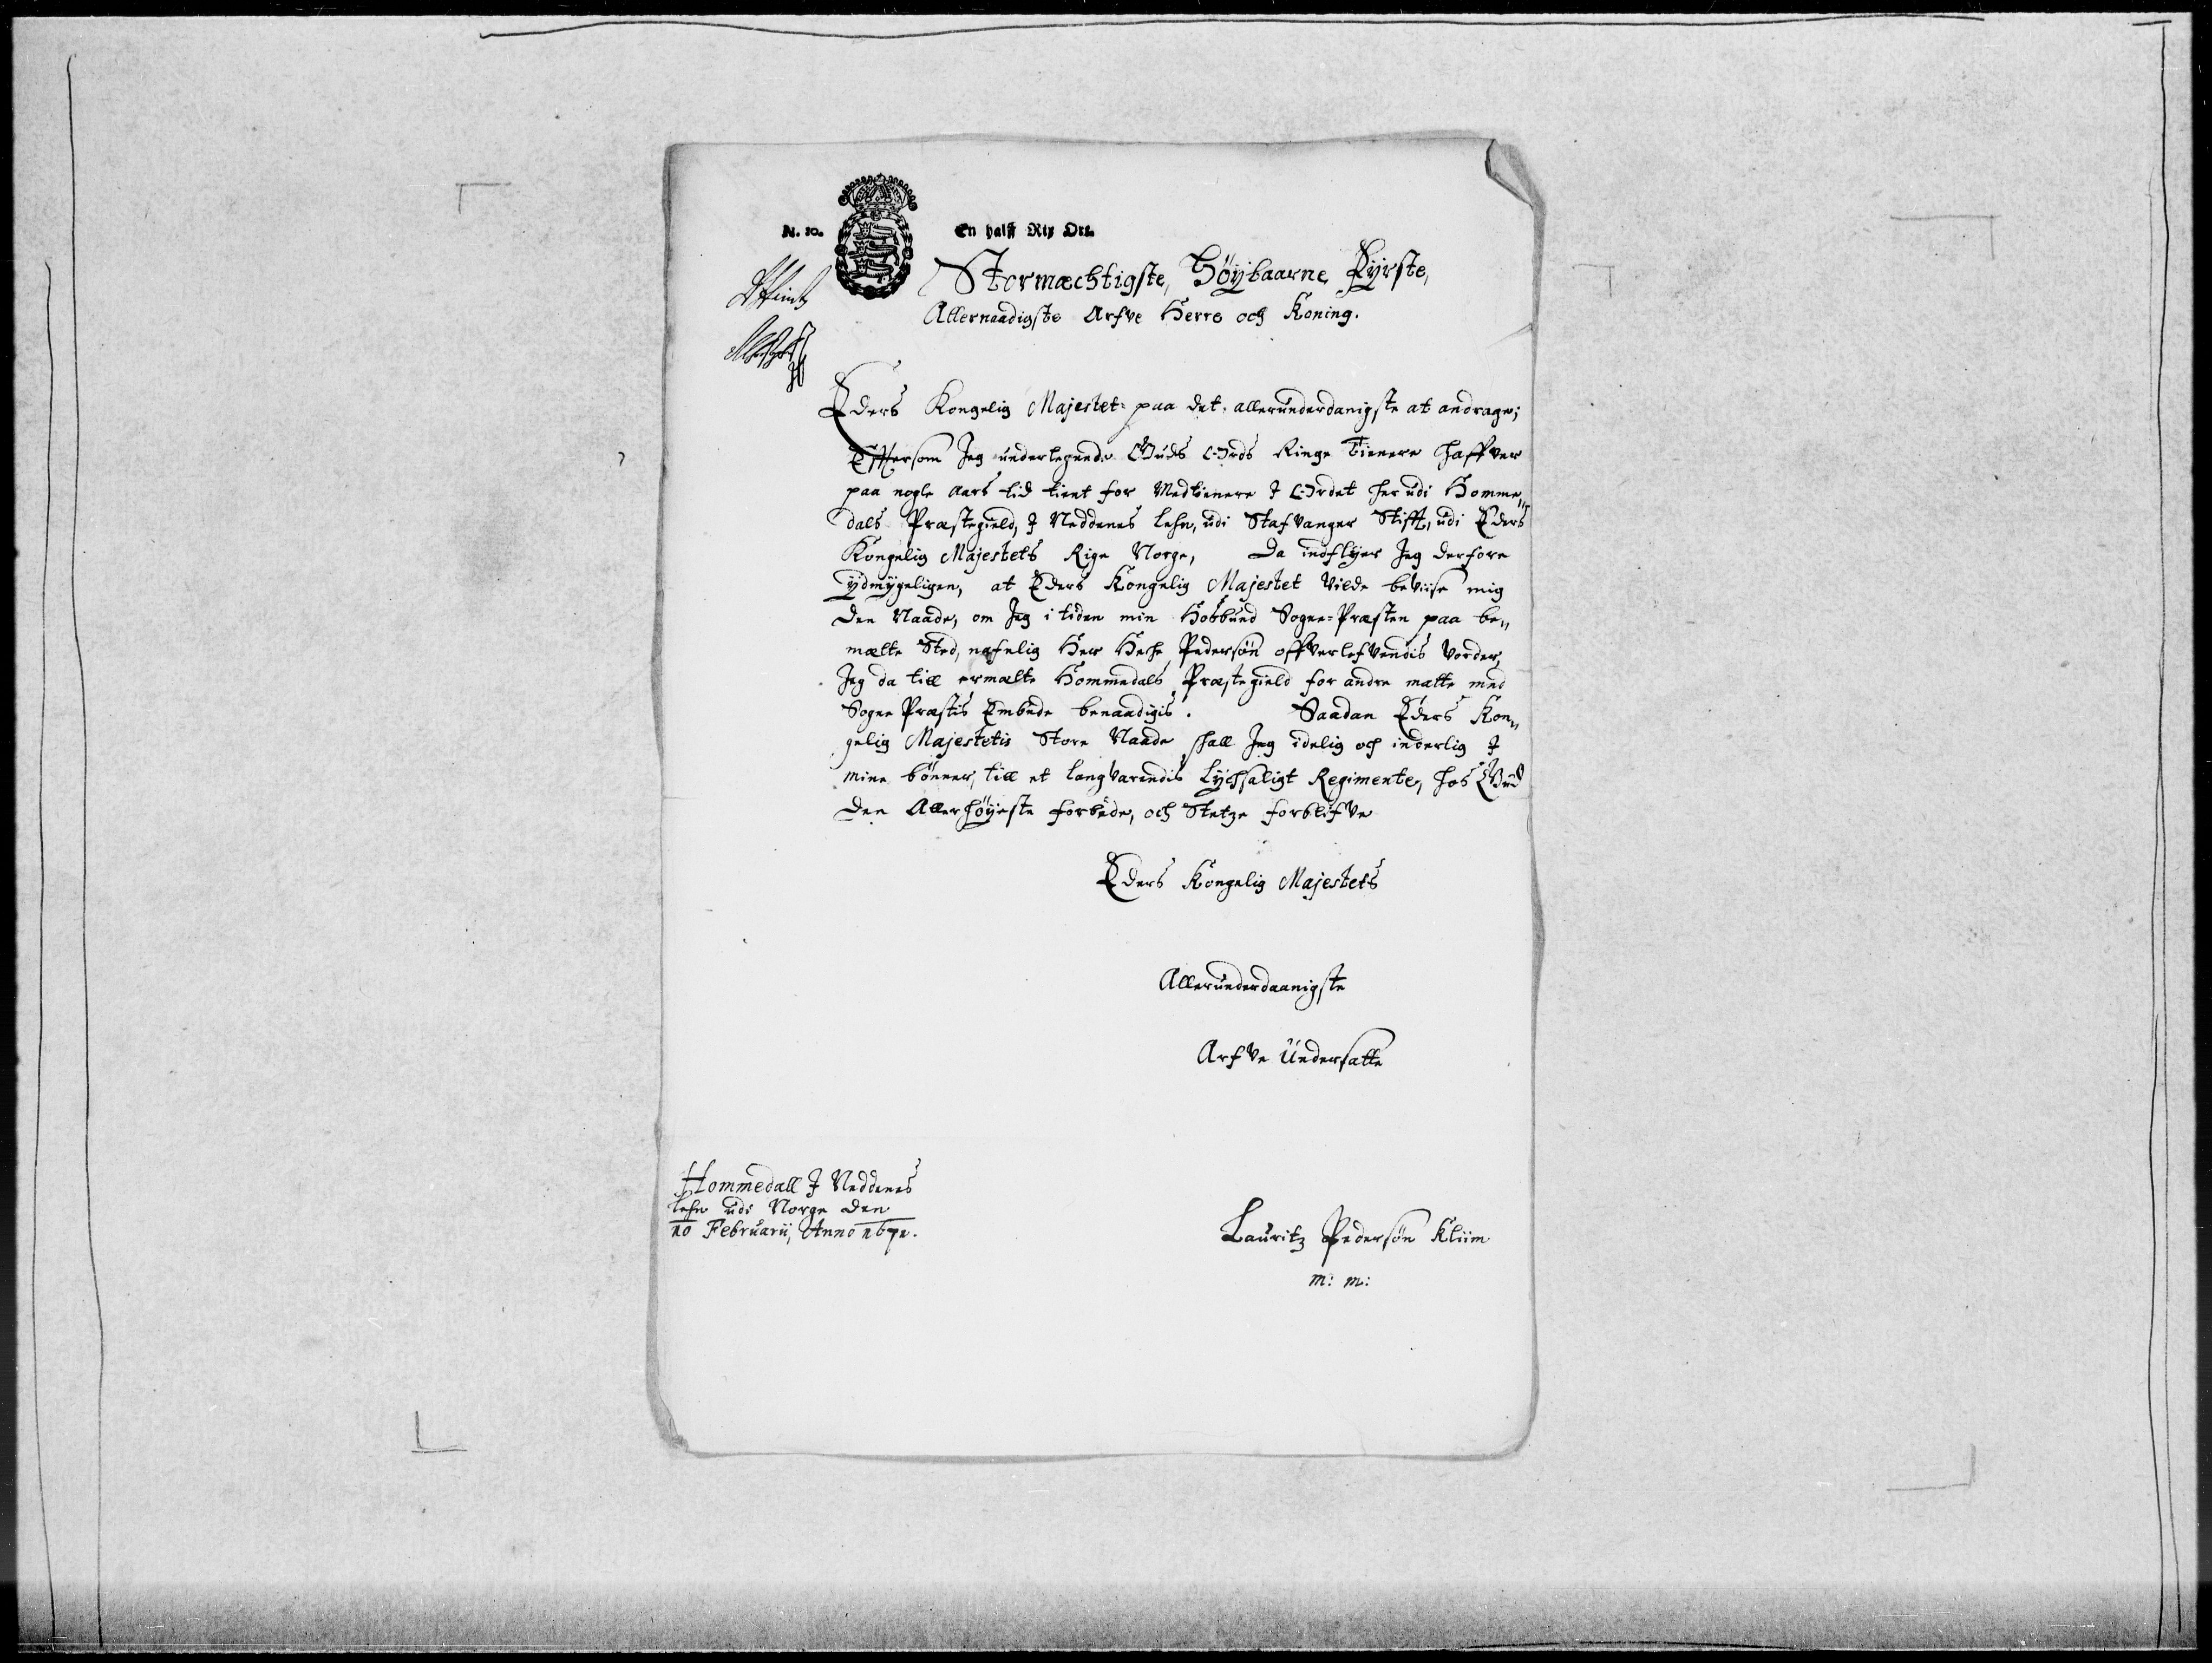 N. 10.
En halff Rix Ort.
Stormæchtigste, Höÿbaarne Fÿrste,
Allernaadigste Arfve Herre och Koning.
Eders Kongelig Majestet paa det allerunderdanigste at andrage;
Efftersom Jeg underlegende Guds Ords Ringe Tienere haffver
paa nogle aars tid tient for Medtienere J Ordet her udi Homme„
dals Præstegield, J Neddenes lehn, udi Stafvanger Stifft, udi Eders
Kongelig Majestets Rige Norge, Da indflÿer Jeg derfore
ÿdmÿgeligen, at Eders Kongelig Majestet vilde beviise mig
den Naade, om Jeg i tiden min Hosbund Sogne-Præsten paa be„
mælte Sted, nafnlig Her Pedersön offverlefvendis vorder,
Jeg da till ermælte Hommedals Præstegield for andre matte med
Sogne Præstis Embede benaadigis. Saadan Eders Kon„
gelig Majestetis Store Naade skall Jeg idelig och inderlig J
mine bönner, till et langvarendis Lÿchsaligt Regimente, hos Gud
den Allerhöÿeste forbede, och Stetze forblifve
Eders Kongelig Majestets
Allerunderdaanigste
Arfve Undersatte
Hommedall J Neddenes
lehn udi Norge den
10 Februarii, Anno 1671.
Lauritz Pedersön Kliim
m: m: